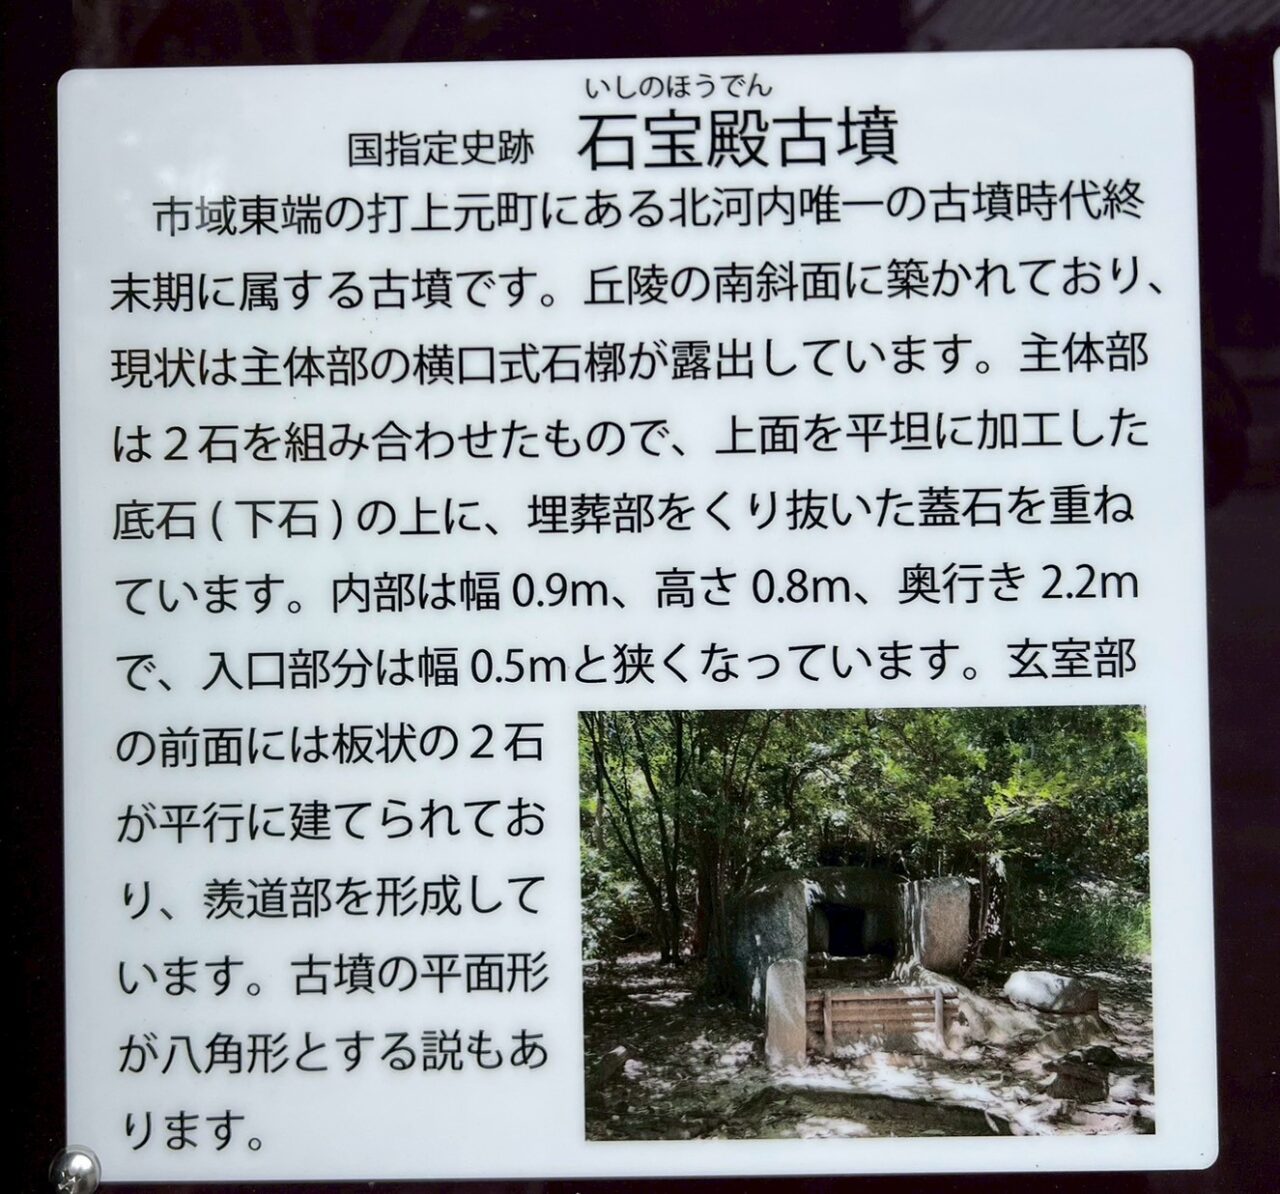 いしのほうでん
国指定史跡 石宝殿古墳
市域東端の打上元町にある北河内唯一の古墳時代終
末期に属する古墳です。丘陵の南斜面に築かれており、
現状は主体部の横口式石槨が露出しています。主体部
は２石を組み合わせたもので、上面を平坦に加工した
底石(下石)の上に、埋葬部をくり抜いた蓋石を重ね
ています。内部は幅 0.9m、高さ 0.8m、奥行き 2.2m
で、入口部分は幅 0.5mと狭くなっています。玄室部
の前面には板状の２石
が平行に建てられてお
り、羨道部を形成して
います。古墳の平面形
が八角形とする説もあ
ります。